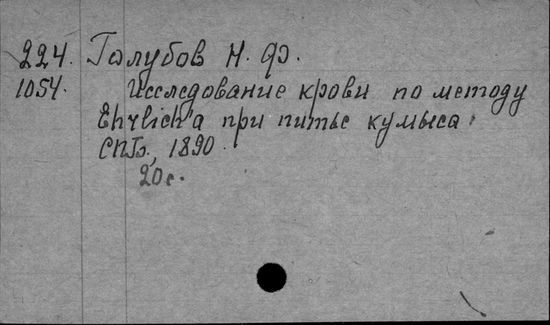 224. Голубов Н. Ф.
1054. Исследование крови по методу
Ehrlich'a при питье кумыса.
СПБ, 1890.
20с.